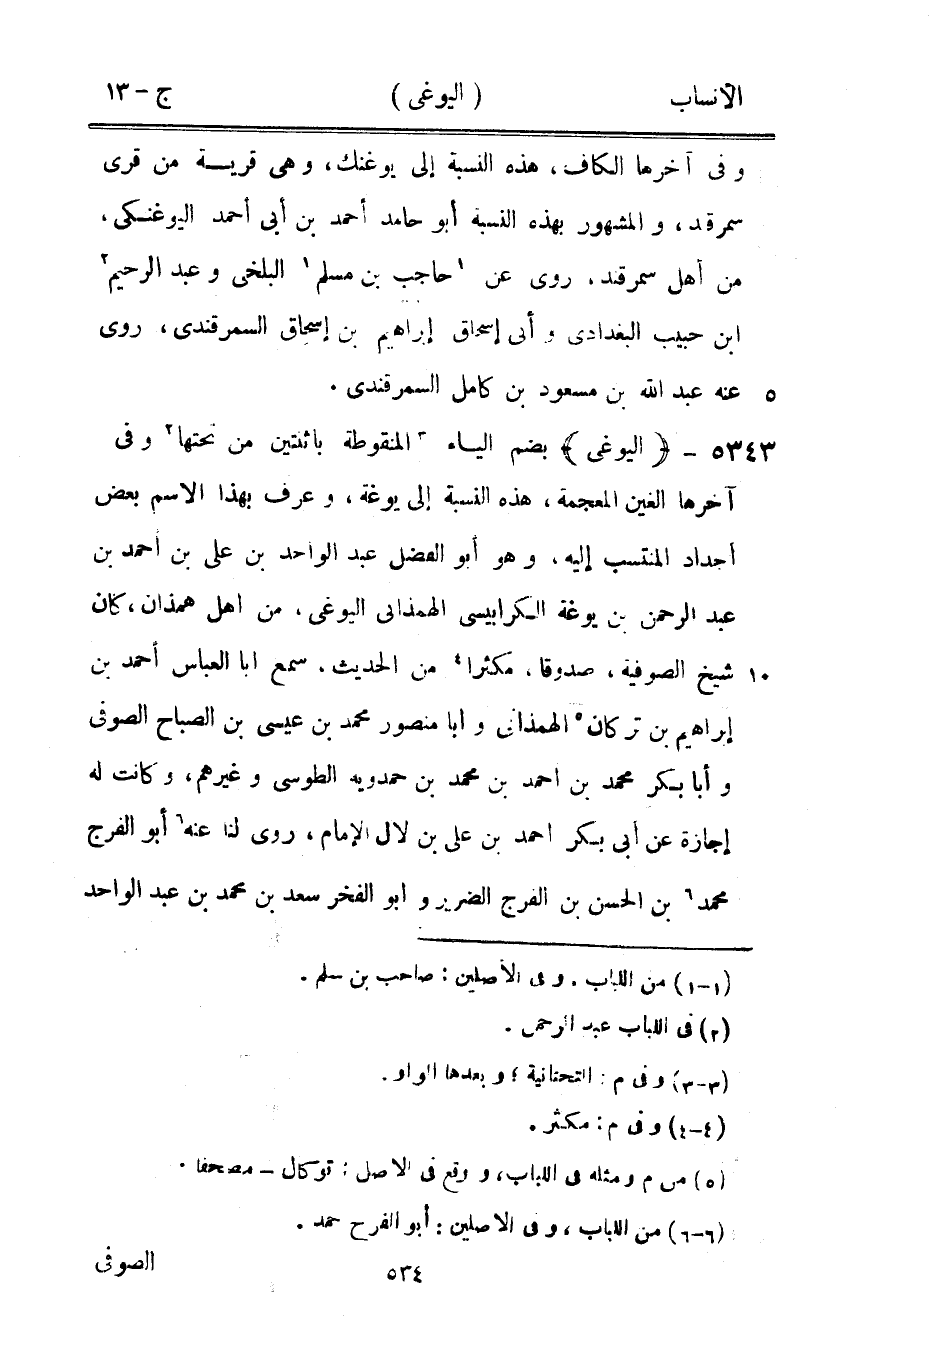 الأنساب ( اليوغى ) ج - ١٣
و فى آخرها الكاف، هذه النسبة إلى يوغنك، و هى قرية من قرى
سمرقند، و المشهور بهذه النسبة أبو حامد أحمد بن أبى أحمد اليوغنكى،
من أهل سمرقند، روى عن ١حاجب بن مسلم١ البلخى و عبد الرحيم٢
ابن حبيب البغدادى و أبى إسحاق إبراهيم بن إسحاق السمرقندى، روى
٥ عنه عبد الله بن مسعود بن كامل السمرقندى.
٥٣٤٣ - ﴿اليوغى﴾ بضم الياء ٣المنقوطة باثنتين من تحتها٣ و فى
آخرها الغين المعجمة، هذه النسبة إلى يوغة، و عرف بهذا الاسم بعض
أجداد المنتسب إليه، و هو أبو الفضل عبد الواحد بن على بن أحمد بن
عبد الرحمن بن يوغة الكرابيسى الهمذانى اليوغى، من اهل همذان، كان
١٠ شيخ الصوفية، صدوقا، مكثرا٤ من الحديث. سمع ابا العباس أحمد بن
إبراهيم بن تركان٥ الهمذانى و ابا منصور محمد بن عيسى بن الصباح الصوفى
و أبا بكر محمد بن احمد بن محمد بن حمدويه الطوسى و غيرهم، و كانت له
إجازة عن أبى بكر احمد بن على بن لال الإمام، روى لنا عنه ٦أبو الفرج
محمد٦ بن الحسن بن الفرج الضرير و ابو الفخر سعد بن محمد بن عبد الواحد
(١-١) من اللباب. و فى الأصلين: صاحب بن سلم.
(٢) فى اللباب عبد الرحمن.
(٣-٣) و فى م: التحتانية؛ و بعدها الواو.
(٤-٤) و فى م: مكثر.
(٥) من م و مثله فى اللباب، و وقع فى الاصل: توكال - مصحفا.
(٦-٦) من اللباب، و فى الاصلين: أبو الفرح حمد.
٥٣٤ الصوفى